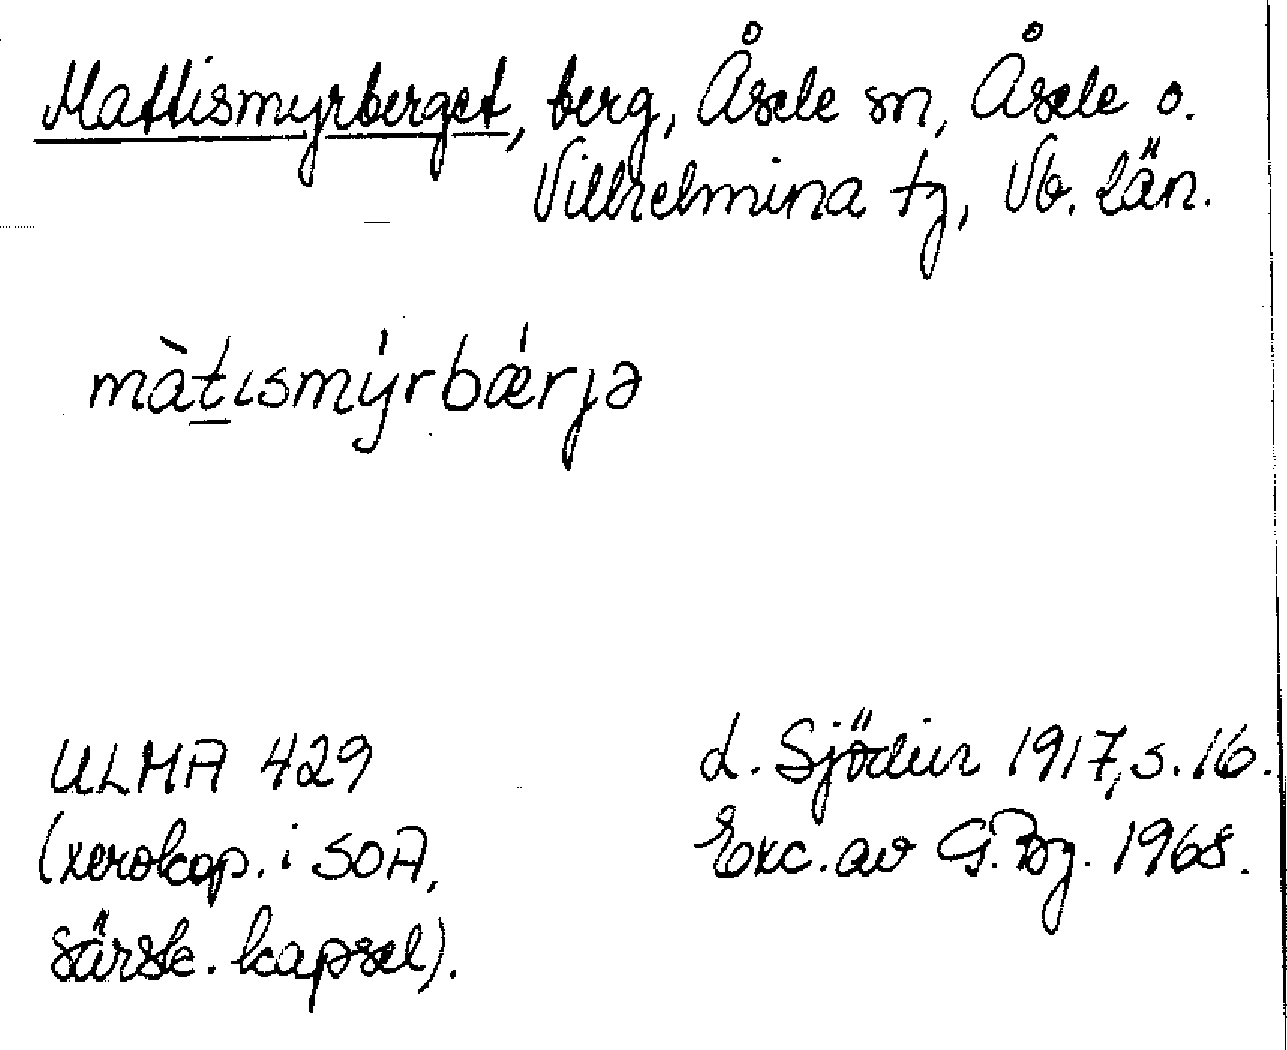 Mattismyrberget, berg, Åsele sn, Åsele o.
Vilhelmina tg, Vb. län.
màt̲ısmýrbǽrjə
ULMA 429
(xerokop. i SOA,
särsk. kapsel).
L. Sjödin 1917, s. 16.
Exc. av G. Bg. 1968.